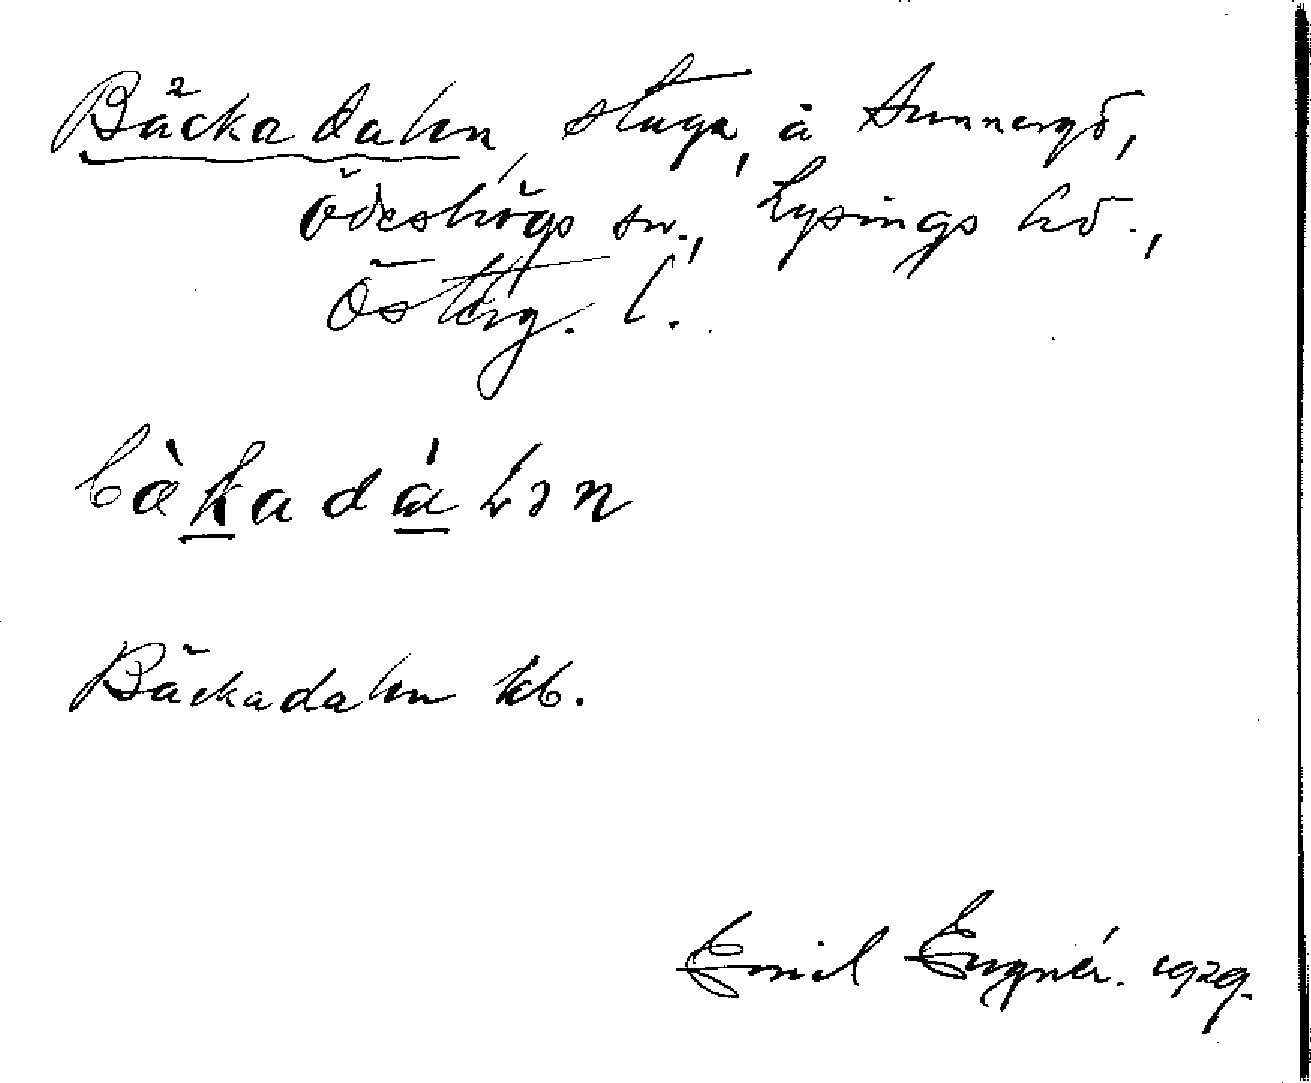 Bäckadalen, stuga, å Sunnergö,
Ödeshögs sn., Lysings hd.,
Österg. l.
bæ̀kadálən
Bäckadalen kb.
Emil Engnér. 1929.